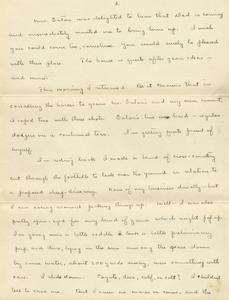 2.
Mrs. Eaton was delighted to hear that Dad is coming
and immediately wanted me to bring him up. I wish
you could come too, sometime. You would surely be pleased
with their place. The house is quite after your ideas—
and mine.
This morning I returned. Be it known that in
corralling the horses to game Mr. Eaton's and my own mount,
I roped two with three shots. Eaton's live hard-eyeter
dodgers on a continued toss. I'm getting quite proud of
myself.
In riding back I made a kind of cross-country
cut through the foothills to look over the ground in relation to
a proposed deep-discovery. None of my business really—but
I am nosing around picking things up. Well—I was also
partly open-eyed for any kind of game which might pop up.
I'm going down a little saddle to look a little preliminary
peep, and there, lying in the sun among the grass down
by some water, about 200 yards away, was something with
ears. I slid down. Coyote, deer, calf, or colt? I couldn't
tell to save me. But I saw no mares or cows, and the